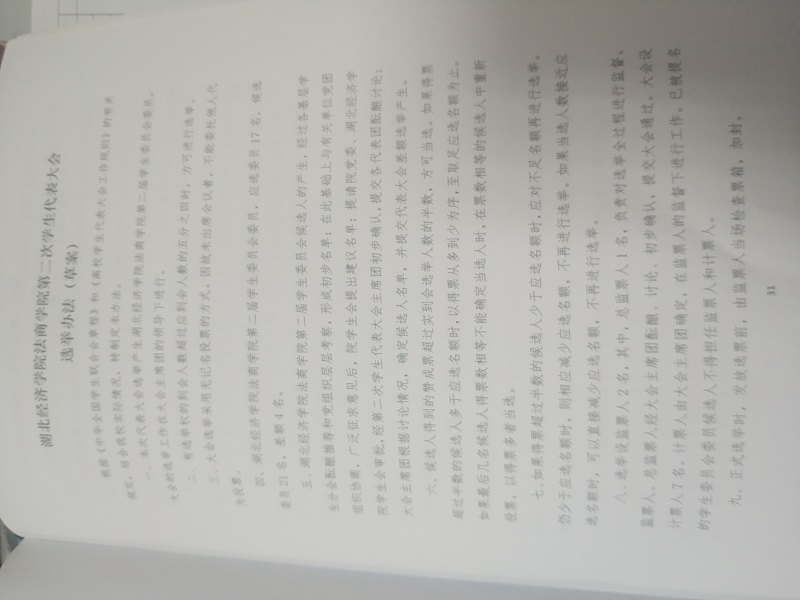 湖北经济学院法商学院第二次学生代表大会
选举办法（草案）
根据《中华全国学生联合会章程》和《高校学生代表大会工作规则》的有关
规定，结合我校实际情况，特制定本办法。
一、本次代表大会选举产生湖北经济学院法商学院第二届学生委员会委员。
大会的选举工作在大会主席团的领导下进行。
二、有选举权的到会人数超过应到会人数的五分之四时，方可进行选举。
三、大会选举采用无记名投票的方式。因故未出席会议者，不能委托他人代
为投票。
四、湖北经济学院法商学院第二届学生委员会委员，应选委员17名，候选
委员21名，差额4名。
五、湖北经济学院法商学院第二届学生委员会候选人的产生，经过各基层学
生分会酝酿推荐和党组织层层考察，形成初步名单；在此基础上与有关单位党团
组织协商，广泛征求意见后，院学生会提出建议名单；提请院党委、湖北经济学
院学生会审批，经第二次学生代表大会主席团初步确认，提交各代表团酝酿讨论；
大会主席团根据讨论情况，确定候选人名单，并提交代表大会差额选举产生。
六、候选人得到的赞成票超过实到会选举人数的半数，方可当选。如果得票
超过半数的候选人多于应选名额时，以得票从多到少为序，至取足应选名额为止。
如果最后几名候选人得票数相等不能确定当选人时，在票数相等的候选人中重新
投票，以得票多者当选。
七、如果得票超过半数的候选人少于应选名额时，应对不足名额再进行选举。
仍少于应选名额时，则相应减少应选名额，不再进行选举。如果当选人数接近应
选名额时，可以直接减少应选名额，不再进行选举。
八、选举设监票人2名，其中，总监票人1名，负责对选举全过程进行监督。
监票人、总监票人经大会主席团酝酿、讨论、初步确认，提交大会通过。大会设
计票人7名，计票人由大会主席团确定，在监票人的监督下进行工作。已被提名
的学生委员会委员候选人不得担任监票人和计票人。
九、正式选举时，发放选票前，由监票人当场检查票箱，加封。
31